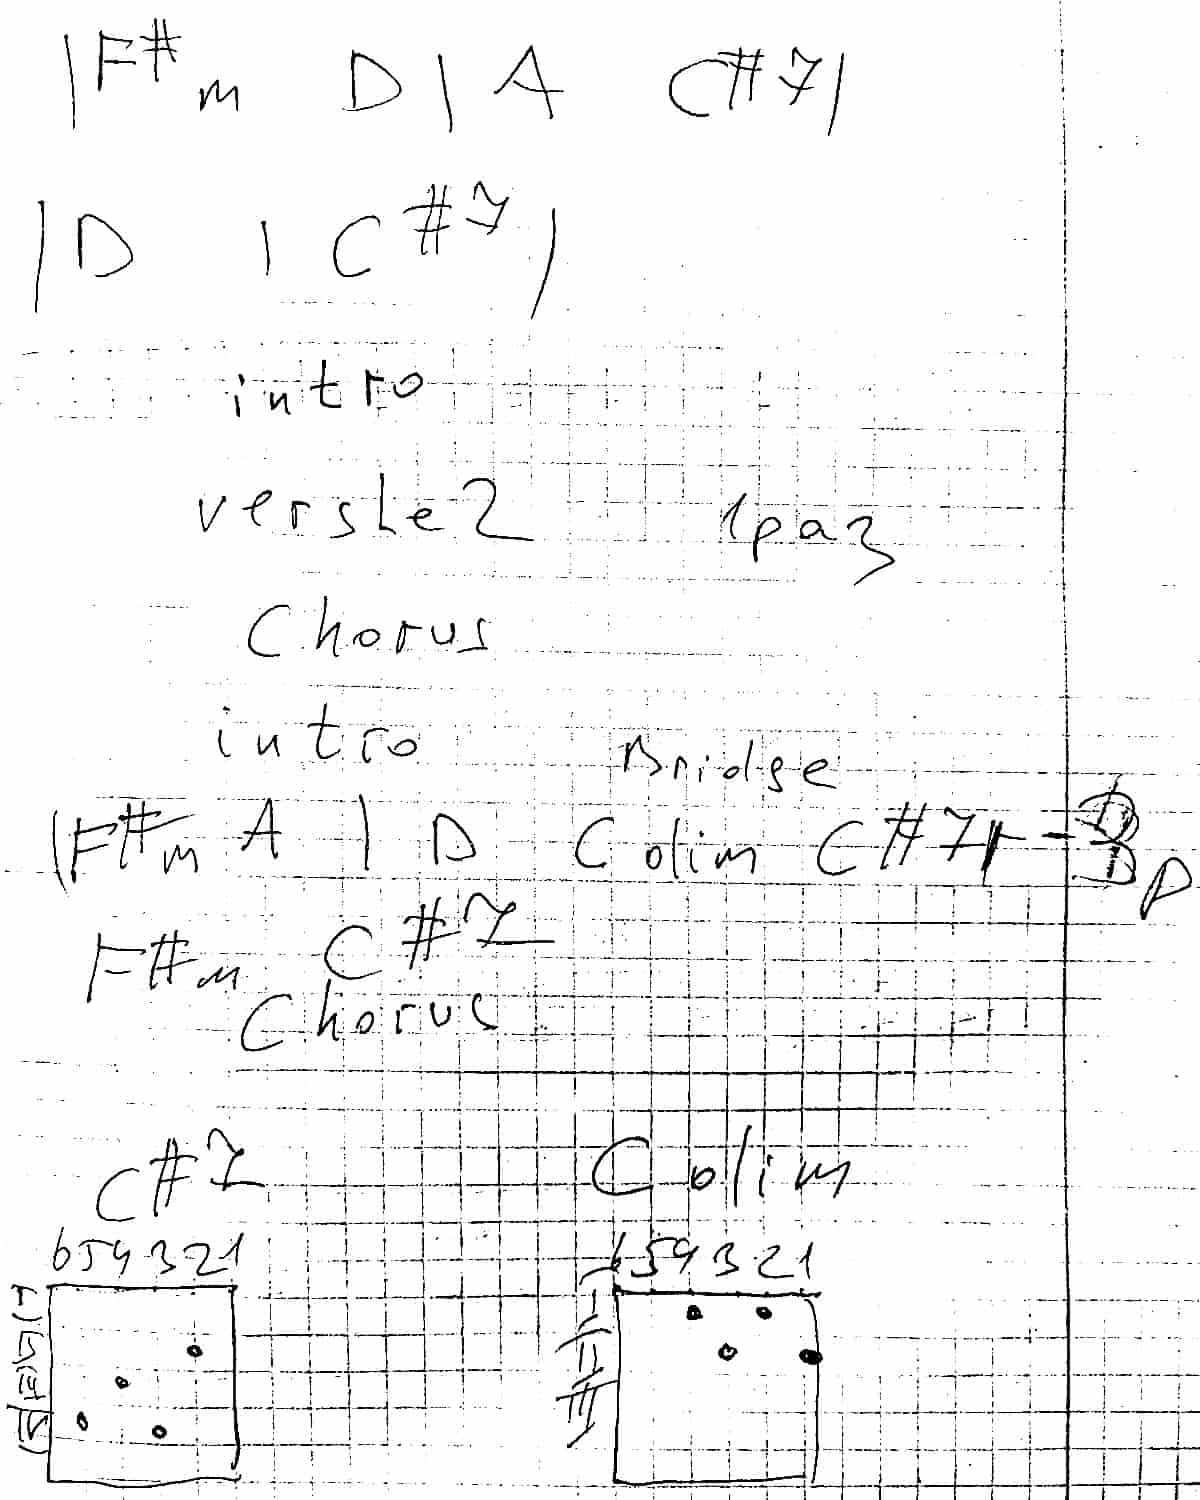 |F#m D | A C#7|
|D | C#7|
intro
vershe2 1раз
Chorus
intro Bridge
|F#m A | D Cdim C#7|
F#m C#7
Chorus
C#7 Cdim
654321 654321
I
II
III